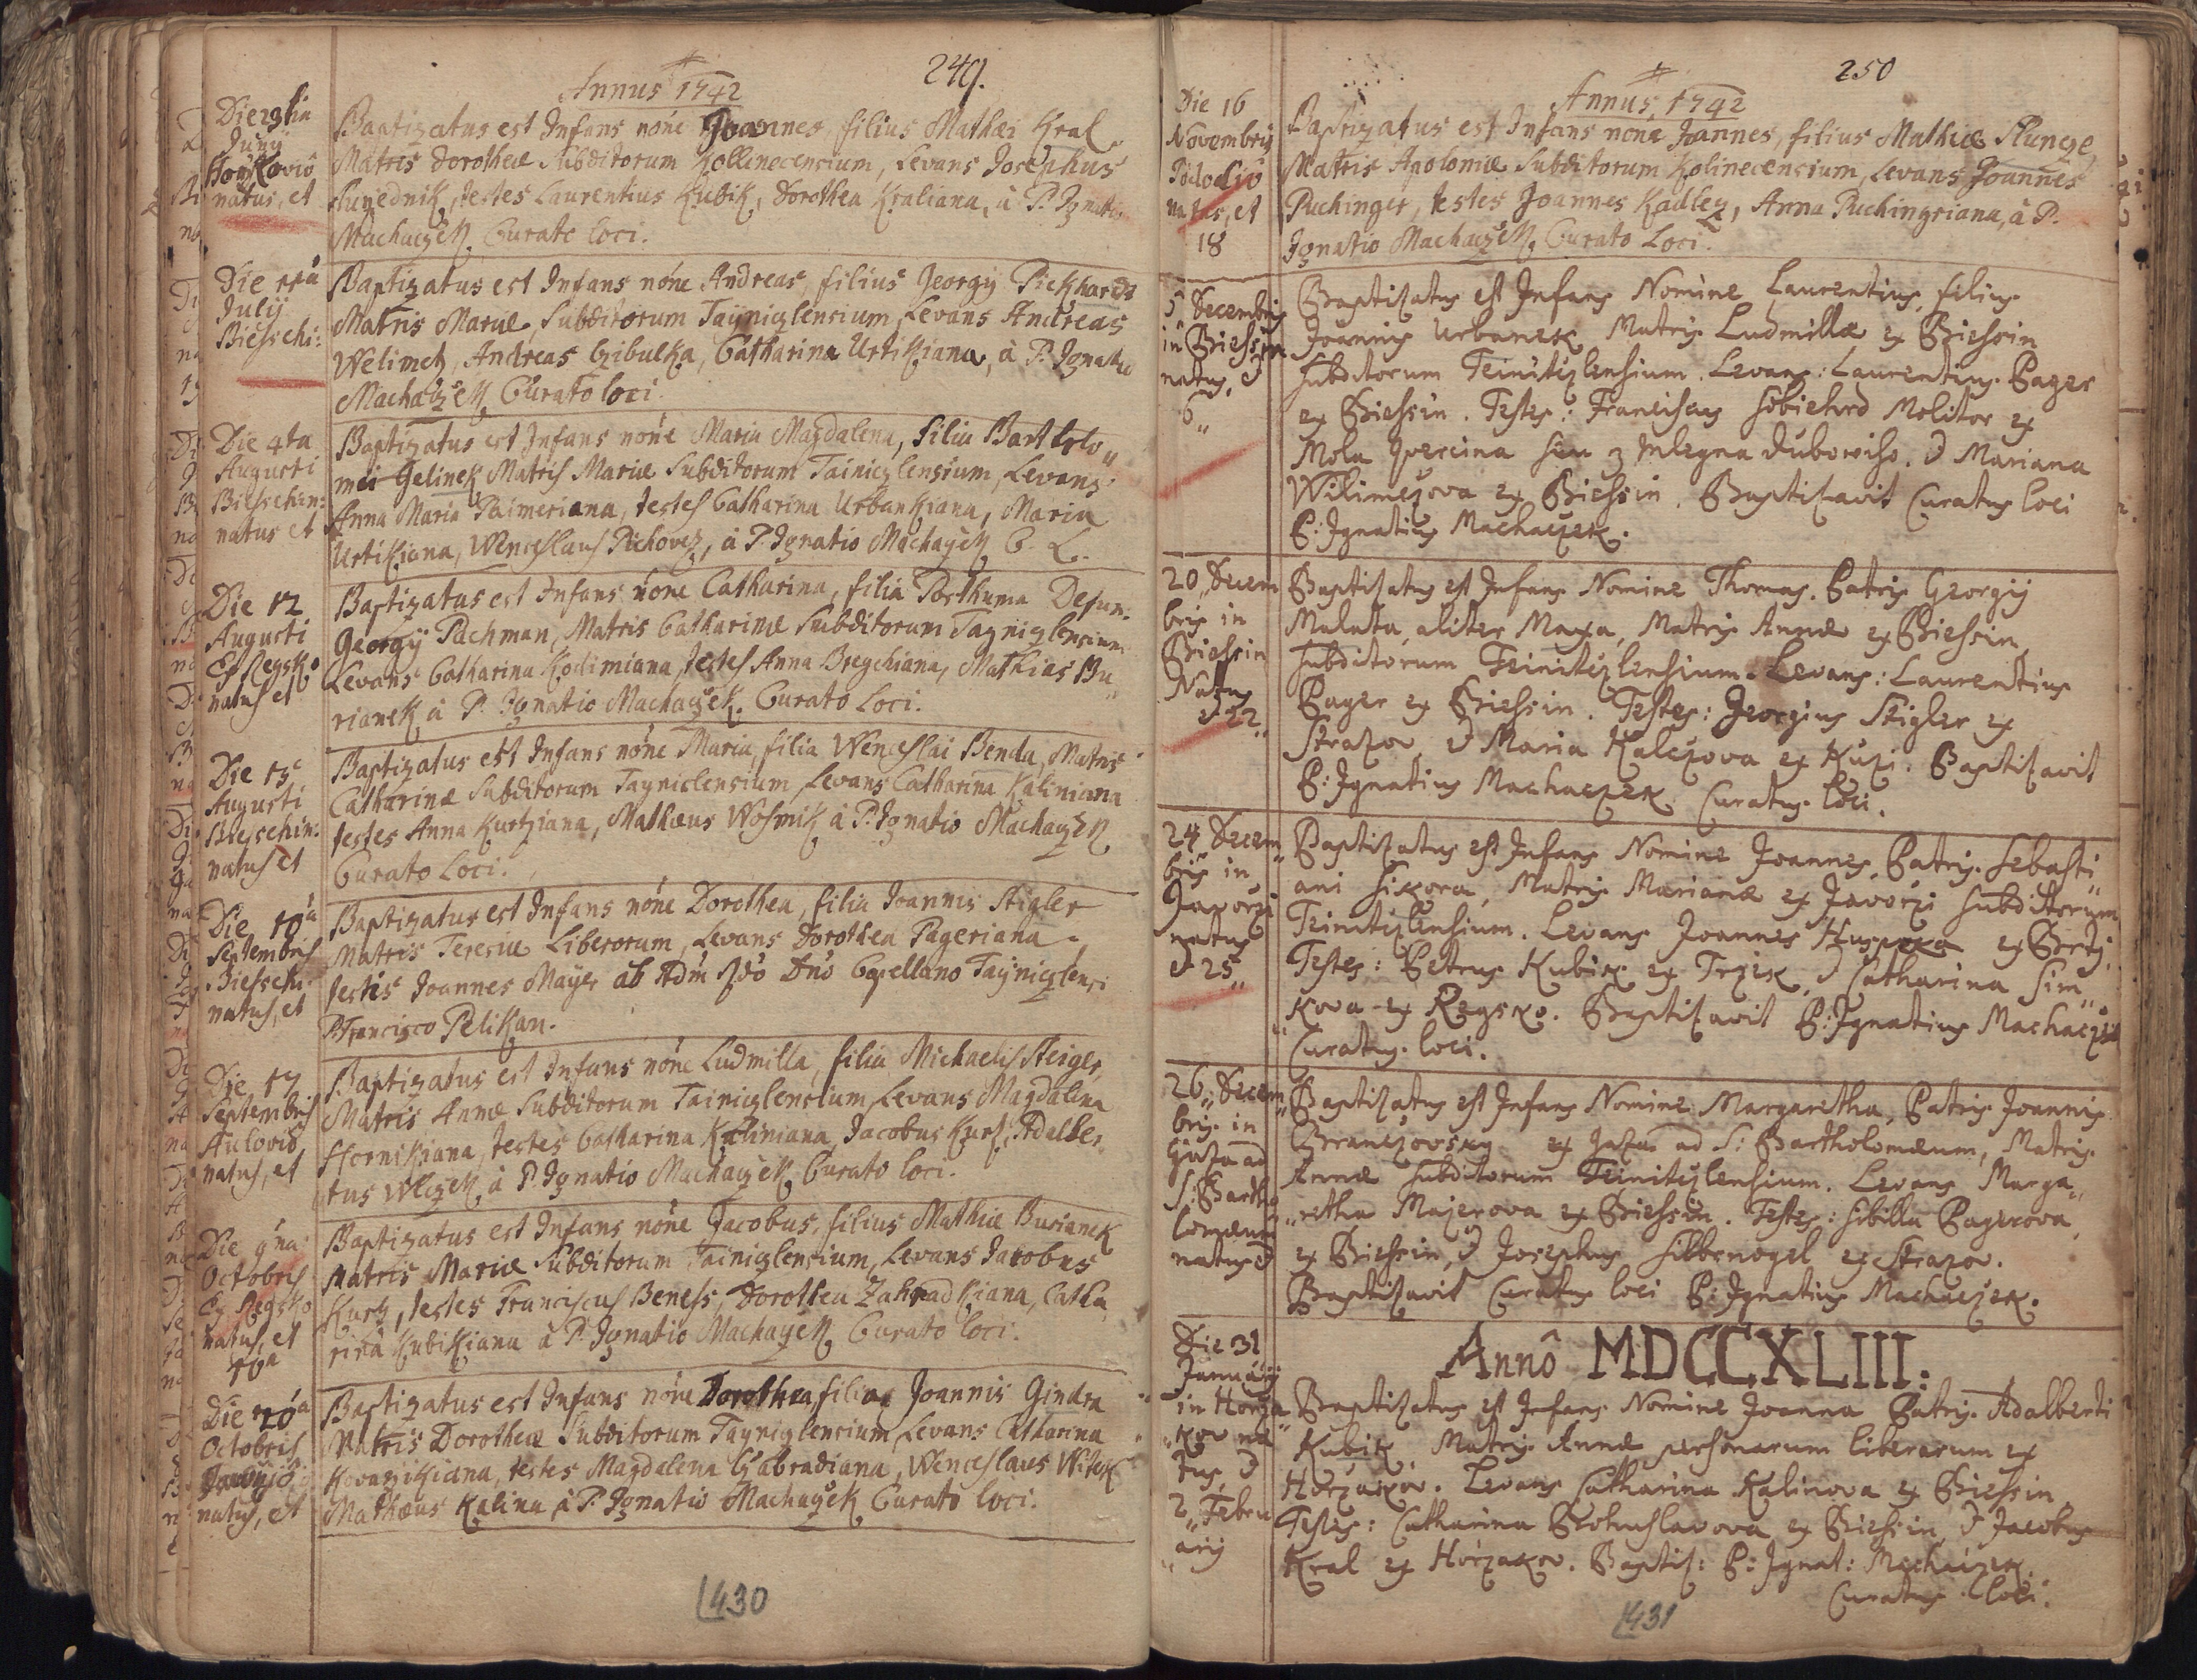 249.
Annus 1742
Die 29tia
Junij
natus, et
Baptizatus est Infans nőne Joannes, filius Mathaei Kral
Matris Dorotheae Subditorum Kollinecensium, Levans Josephus
testes Laurentius Kubik, Dorothea Kraliana, à P. Ignatio
Machaczek Curato loci.
Die 11a
Julij
Biesschi:
Baptizatus est Infans nőne Andreas, filius Georgij Pickhardt
Matris Mariae Subditorum Taÿniczlensium, Levans Andreas
Welimetz, Andreas Czibulka, Catharina Urtikiana, à P. Ignatio
Machaczek Curato loci.
Die 4ta
Augusti
Biesschin:
natus et
Baptizatus est Infans nőne Maria Magdalena, filia Bartholo„
mei Gelinek Matris Mariae Subditorum Tainiczlensium, Levans
Anna Maria Paimeriana, testes Catharina Urbankiana, Maria
Urtikiana, Wenceslaus Pichovez, à P. Ignatio Machaczek C. L.
Die 12
Augusti
Ex Regsko
natus et
Baptizatus est Infans nőne Catharina, filia Posthuma Defun:
Georgij Pachman, Matris Catharinae Subditorum Tayniczlensium
Levans Catharina Kodimiana, testes Anna Bregchiana, Mathias Bu„
rianek à P. Ignatio Machaczek Curato Loci.
Die 15
Augusti
Biesschin:
natus et
Baptizatus est Infans nőne Maria, filia Wenceslai Benda, Matris
Catharinae Subditorum Tayniclensium Levans Catharina Kaliniana
testes Anna Kurtziana, Mathaeus Wosmik à P. Ignatio Machaczek
Curato Loci.
Die 10a
Septembris
Biesschi
natus, et
Baptizatus est Infans nőne Dorothea, filia Joannis Stigler
Matris Teresiae Liberorum, Levans Dorothea Pageriana,
testis Joannes Mayer ab Adm Rdo Dno Capellano Taÿniczlensi
P. Francisco Pelikan.
Die 17
Septembris
natus, et
Baptizatus est Infans nőne Ludmilla, filia Michaelis Steiger,
Matris Annae Subditorum Tainiczlensium, Levans Magdalena
Hornikiana, testes Catharina Kaliniana, Jacobus Kurtz, Adalber
tus Wlczek à P. Ignatio Machaczek Curato loci.
Die 9na
Octobris
Ex Regsko
natus, et
10a
Baptizatus est Infans nőne Jacobus, filius Mathiae Burianek
Matris Mariae Subditorum Tainiczlensium, Levans Jacobus
Kurtz, testes Franciscus Beness, Dorothea Zahradkiana, Catha
rina Kubikiana à P. Ignatio Machaczek Curato loci.
Die 10a
Octobris
natus, et
Baptizatus est Infans nőne Dorothea, filia Joannis Gindra
Matris Dorotheae Subditorum Tayniczlensium Levans Catharina
Kovarzikiana, testes Magdalena Czabradiana, Wenceslaus Witek
Mathaeus Kalina à P. Ignatio Machaczek Curato loci.
430
250
Annus, 1742
Die 16
Novembris
natus, et
18
Baptizatus est Infans nőne Joannes, filius Mathiae Sluncze,
Matris Apoloniae Subditorum Kolinecensium, Levans Joannes
Puchinger, testes Joannes Kadlez, Anna Puchingriana, à P.
Ignatio Machaczek Curato Loci.
5 Decembris
in Biessin
natus, et
6„
Baptizatus est Infans Nomine Laurentius, filius
Joannis Urbanek, Matris Ludmillae ex Biessin
Subditorum Teinitzlensium. Levans: Laurentius Pager
ex Biessin. Testes: Franciscus Sobiehrd Molitor ex
Mola Quercina seu z Mlegna Duboviho. et Mariana
Wilimezova ex Biessin. Baptizavit Curatus loci
P: Ignatius Machaczek.
20„ Decem
bris in
Biessin
Natus
et 22„
Baptizatus est Infans Nomine Thomas. Patris Georgij
Malata, aliter Maxa, Matris Annae ex Biessin,
Subditorum Teinitzlensium. Levans: Laurentius
Pager ex Biessin. Testes: Georgius Stigler ex
Strazov, et Maria Kalczova ex Kuzi. Baptizavit
P: Ignatius Machaczek Curatus loci.
24 Decem„
bris in
Javorzi
natus
et 25„
Baptizatus est Infans Nomine Joannes, Patris Sebasti„
ani Sikora, Matris Marianae ex Javorzi Subditorum
Teinitzlensium. Levans Joannes Huspeka ex Brtj.
Testes: Petrus Kubik ex Trzek, et Catharina Sim„
kova ex Regsko. Baptizavit P: Ignatius Machaczek
Curatus loci.
26„ Decem„
bris in
Guza ad
S: Bartho
lomaeum
natus et
Baptizatus est Infans Nomine Margaretha, Patris Joannis
Branczovsky ex Jaza ad S: Bartholomaeum, Matris
Annae Subditorum Teinitzlensium. Levans Marga„
„retha Majerova ex Biessin. Testes: Sibilla Pagerova
ex Biessin, et Josephus Silbernogel ex Strazov.
Baptizavit Curatus loci P: Ignatius Machaczek.
Annô MDCCXLIII:
Die 31
Januarij
in Horza
„kov na
tus, et
2„ Febru
„arij
Baptizatus est Infans Nomine Joanna Patris Adalberti
Kubik, Matris Annae personarum liberarum ex
Horzakov. Levans Catharina Kalinova ex Biessin
Testes: Catharina Bohuslavova ex Biessin, et Jacobus
Kral ex Horzakov. Baptiz: P: Ignat: Machaczek
Curatus loci.
431